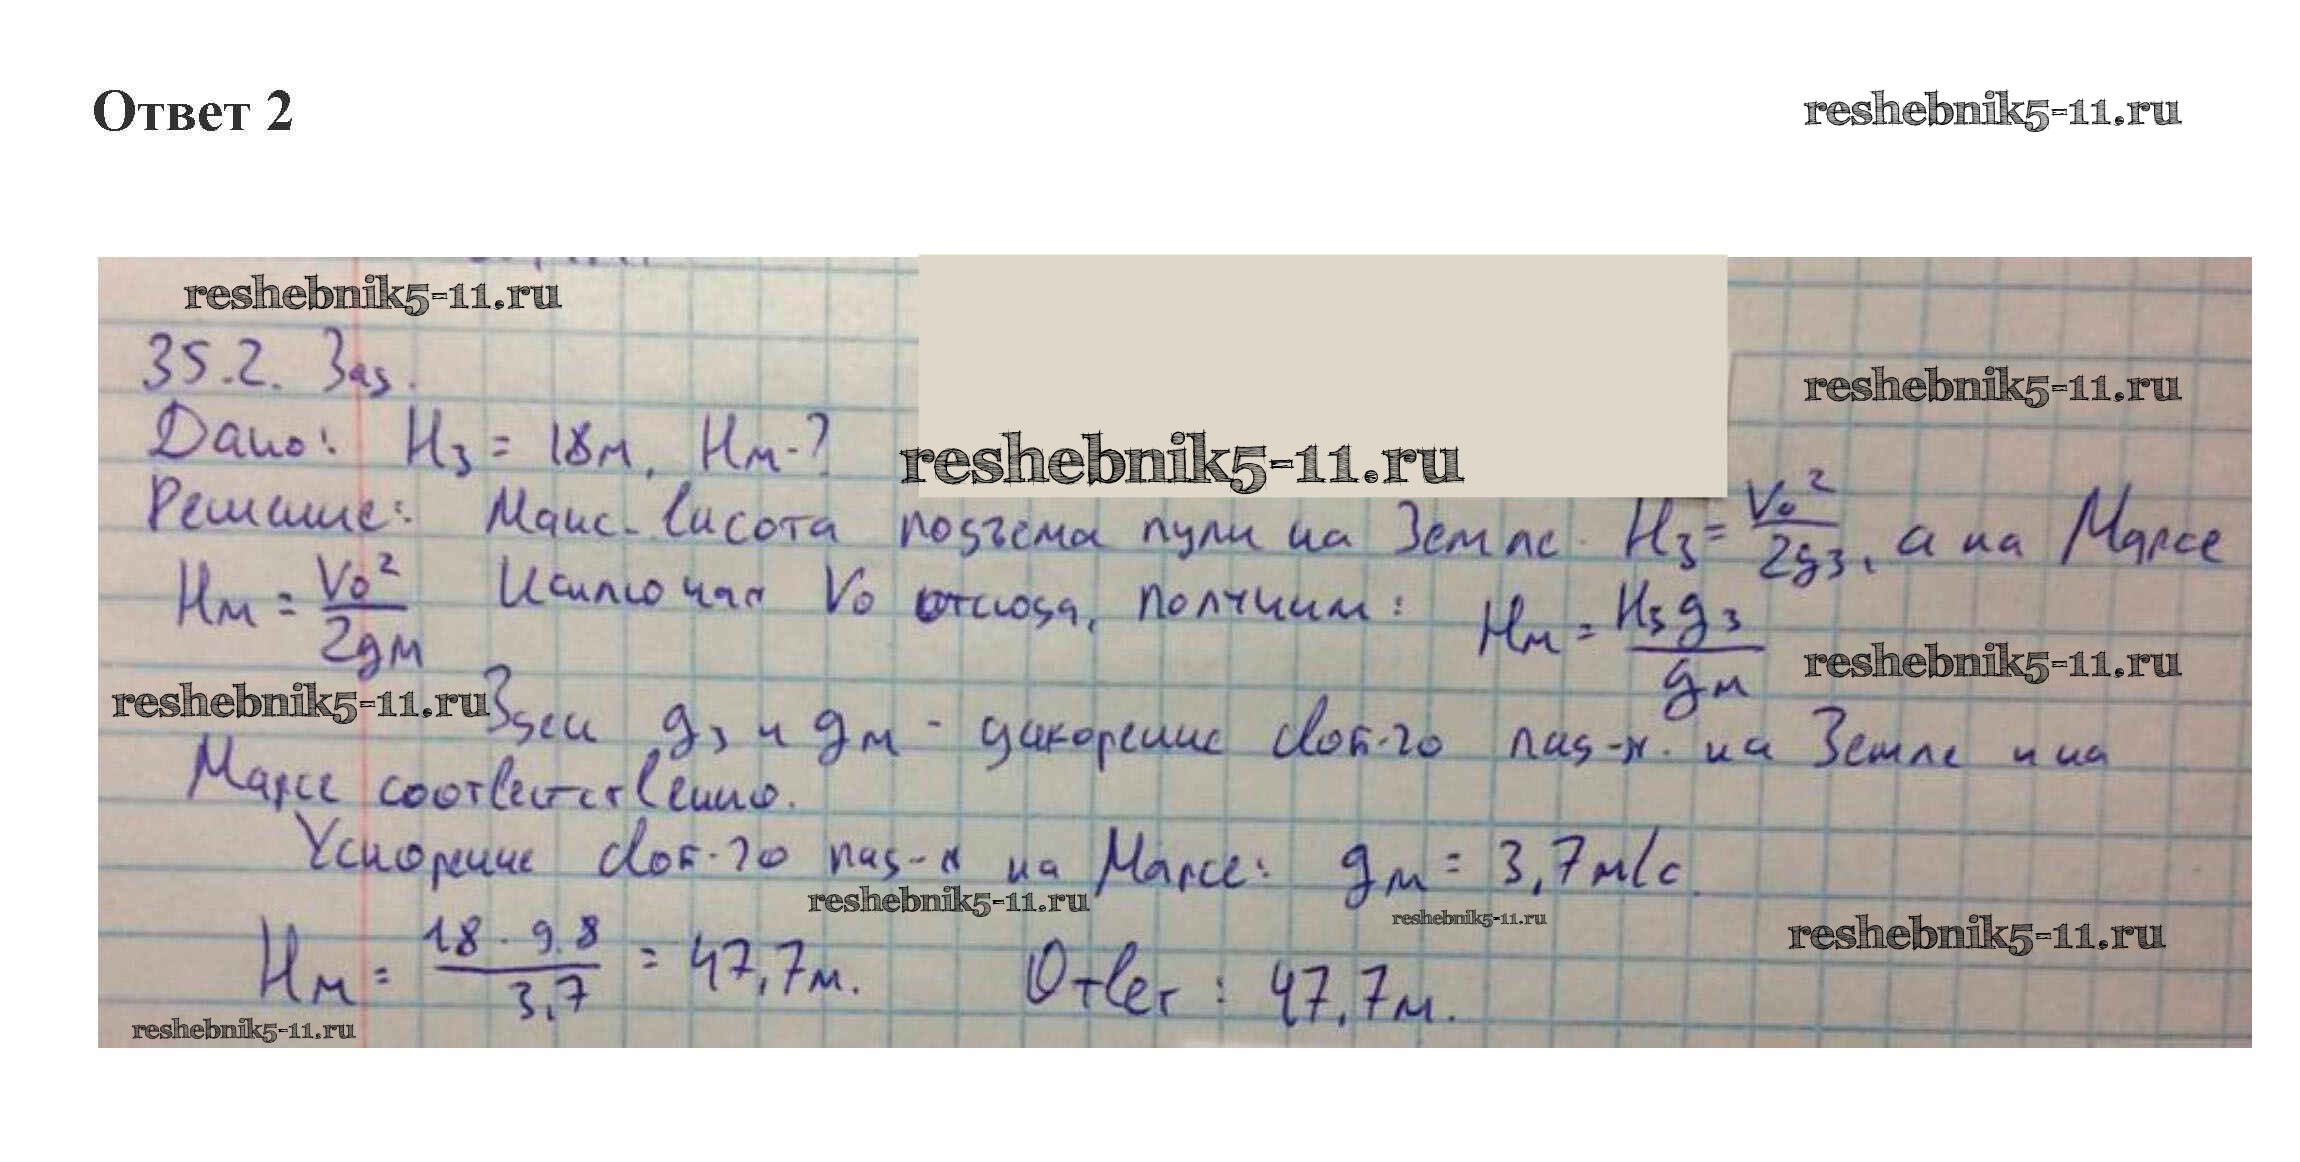 Ответ 2
reshebnik5-11.ru
reshebnik5-11.ru
35.2. Зад.
reshebnik5-11.ru
Дано: Hз = 18м, Hм-?
reshebnik5-11.ru
Решение: Макс. высота подъема пули на Земле. Hз = V₀²/2gз, а на Марсе
Hм = V₀²/2gм Исключая V₀ отсюда, получим: Hм = Hзgз/gм
reshebnik5-11.ru
reshebnik5-11.ru Здесь gз и gм - ускорение своб-го пад-я. на Земле и на
Марсе соответственно.
Ускорение своб-го пад-я на Марсе: gм = 3,7м/с.
reshebnik5-11.ru
reshebnik5-11.ru
reshebnik5-11.ru
Hм = 18·9.8/3,7 = 47,7м. Ответ: 47,7м.
reshebnik5-11.ru